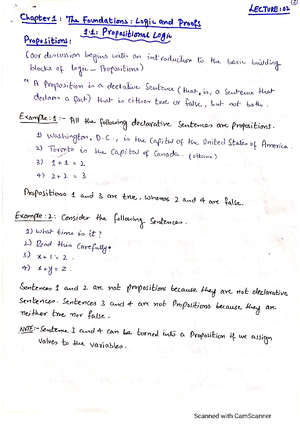 LECTURE:02
Chapter 1: The Foundations: Logic and Proofs
1.1: Propositional Logic
Propositions:
(our discussion begins with an introduction to the basic building
blocks of logic - Propositions)
"A Proposition is a declarative Sentence (that is, a sentence that
declares a fact) that is either true or false, but not both.
Example:1:- All the following declarative Sentences are propositions.
1) Washington, D.C., is the Capital of the United States of America.
2) Toronto is the Capital of Canada. (Ottawa)
3) 1+1=2
4) 2+2=3
Propositions 1 and 3 are true, whereas 2 and 4 are false.
Example:2: Consider the following Sentences.
1) What time is it?
2) Read this Carefully.
3) x+1=2.
4) x+y=z.
Sentences 1 and 2 are not propositions because they are not declarative
Sentences. Sentences 3 and 4 are not Propositions because they are
neither true nor false.
NOTE:- Sentence 3 and 4 can be turned into a Proposition if we assign
values to the variables.
Scanned with CamScanner